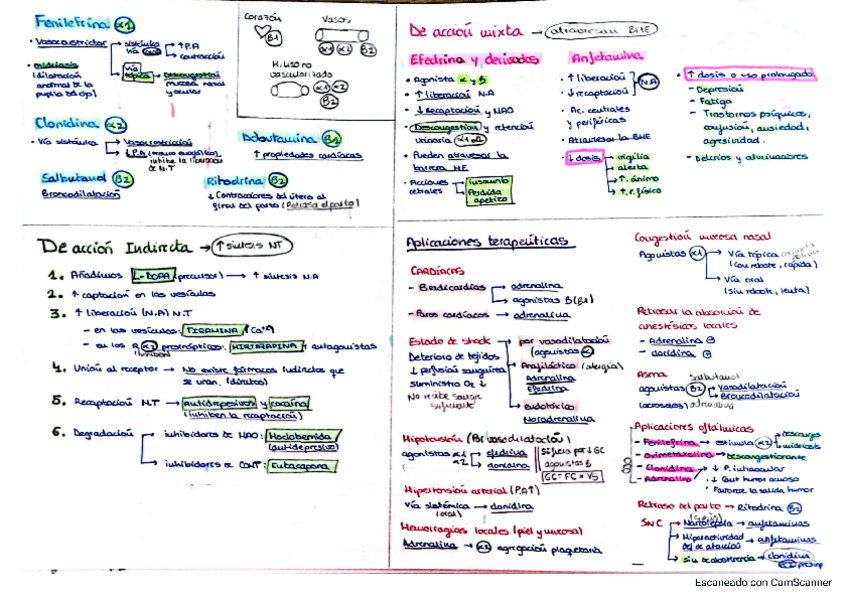 Fenilefrina α1
• Vasoconstrictor
sistémica vía
↑ P.A
contracción
• midriasis
(dilatación anormal de la pupila del ojo)
vía tópica → Descongestión mucosa nasal y ocular
Corazón
β1
Vasos
α1 α2 β2
M. liso no vascularizado
α1 α2
β2
Clonidina α2
• Vía sistémica
Vasoconstricción
↓ P.A
inhibe la liberación de N.T
Dobutamina β1
↑ propiedades cardíacas
Salbutamol β2
Broncodilatación
Ritodrina β2
↓ Contracciones del útero al final del parto (Retrasa el parto)
De acción mixta → atraviesan BHE
Efedrina y derivados
• Agonista α y β
• ↑ liberación N.A
• ↓ Recaptación y MAO
• Descongestión y retención urinaria α1
• Pueden atravesar la barrera HE
• Acciones centrales
Insomnio
Pérdida apetito
Anfetamina
• ↑ liberación
• ↓ recaptación
N.A
• Ac. centrales y periféricas
• Atraviesar la BHE
• ↓ dosis → vigilia
→ alerta
→ ↑ ánimo
→ ↑ r. físico
• ↑ dosis o uso prolongado
- Depresión
- Fatiga
- Trastornos psíquicos, confusión, ansiedad, agresividad.
- Delirios y alucinaciones
De acción Indirecta → ↑ síntesis NT
1. Añadimos L-DOPA (precursor) → ↑ síntesis N.A
2. ↑ captación en las vesículas
3. ↑ liberación (N.A) N.T
- en las vesículas: TIRAMINA
- en los R α2 presinápticos: MIRTAZAPINA antagonistas
inhiben
4. Unión al receptor → No existe fármacos indirectos que se unan, (directos)
5. Recaptación N.T → Antidepresivos y cocaína
(inhiben la recaptación)
6. Degradación
inhibidores de MAO: Moclobemida
(antidepresivo)
inhibidores de COMT: Entacapona
Aplicaciones terapeúticas
CARDÍACAS
- Bradicardias → adrenalina
→ agonistas β (β1)
- Paros cardíacos → adrenalina
Estado de shock → por vasodilatación
(agonistas α)
Deterioro de tejidos
↓ perfusión sanguínea
Suministro O₂ ↓
No recibe sangre suficiente
Anafiláctico (alergia)
Adrenalina
Efedrina
Endotóxico
Noradrenalina
Hipotensión (Por vasodilatación)
agonistas α1 α2
efedrina
clonidina
Si fuera por ↓ GC
agonistas β
GC = FC × VS
Hipertensión arterial (P.A↑)
Vía sistémica (oral) → clonidina
Hemorragias locales (piel y mucosa)
Adrenalina → α2 agregación plaquetaria
Congestión mucosa nasal
Agonistas α1 → Vía tópica
(con rebote, rápida)
→ Vía oral
(sin rebote, lenta)
Retrasar la absorción de anestésicos locales
- Adrenalina
- clonidina
Asma
Salbutamol
agonistas β2 → Vasodilatación
→ Broncodilatación
(aerosoles)
Aplicaciones oftálmicas
- Fenilefrina → estimula
- Oximetazolina → Descongestionante
- Clonidina → ↓ P. intraocular
- Adrenalina
• ↓ Cant humor acuoso
• Favorece la salida humor
Retraso del parto → Ritodrina β2
SNC → Narcolepsia → anfetaminas
→ Hiperactividad déf de atención → anfetaminas
→ Sín. de abstinencia → clonidina
Escaneado con CamScanner